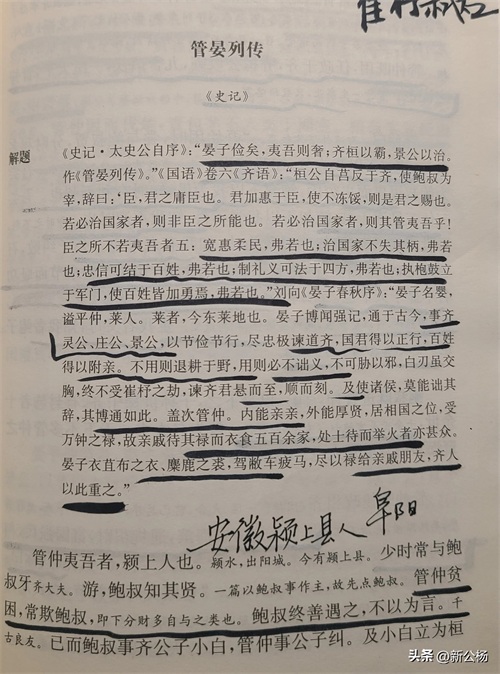 管晏列传
《史记》
解题
《史记·太史公自序》：“晏子俭矣，夷吾则奢；齐桓以霸，景公以治。
作《管晏列传》。”《国语》卷六《齐语》：“桓公自莒反于齐，使鲍叔为
宰，辞曰：‘臣，君之庸臣也。君加惠于臣，使不冻馁，则是君之赐也。
若必治国家者，则非臣之所能也。若必治国家者，则其管夷吾乎！
臣之所不若夷吾者五：宽惠柔民，弗若也；治国家不失其柄，弗若
也；忠信可结于百姓，弗若也；制礼义可法于四方，弗若也；执枹鼓立
于军门，使百姓皆加勇焉，弗若也。”刘向《晏子春秋序》：“晏子名婴，
谥平仲，莱人。莱者，今东莱地也。晏子博闻强记，通于古今，事齐
灵公、庄公、景公，以节俭节行，尽忠极谏道齐，国君得以正行，百姓
得以附亲。不用则退耕于野，用则必不诎义，不可胁以邪，白刃虽交
胸，终不受崔杼之劫，谏齐君悬而至，顺而刻。及使诸侯，莫能诎其
辞，其博通如此。盖次管仲。内能亲亲，外能厚贤，居相国之位，受
万钟之禄，故亲戚待其禄而衣食五百余家，处士待而举火者亦甚众。
晏子衣苴布之衣、麋鹿之裘，驾敝车疲马，尽以禄给亲戚朋友，齐人
以此重之。”
安徽颍上县人 阜阳
管仲夷吾者，颍上人也。颍水，出阳城。今有颍上县。少时常与鲍
叔牙齐大夫。游，鲍叔知其贤。一篇以鲍叔事作主，故先点鲍叔。管仲贫
困，常欺鲍叔，即下分财多自与之类也。鲍叔终善遇之，不以为言。千
古良友。已而鲍叔事齐公子小白，管仲事公子纠。及小白立为桓
头条 @新公杨